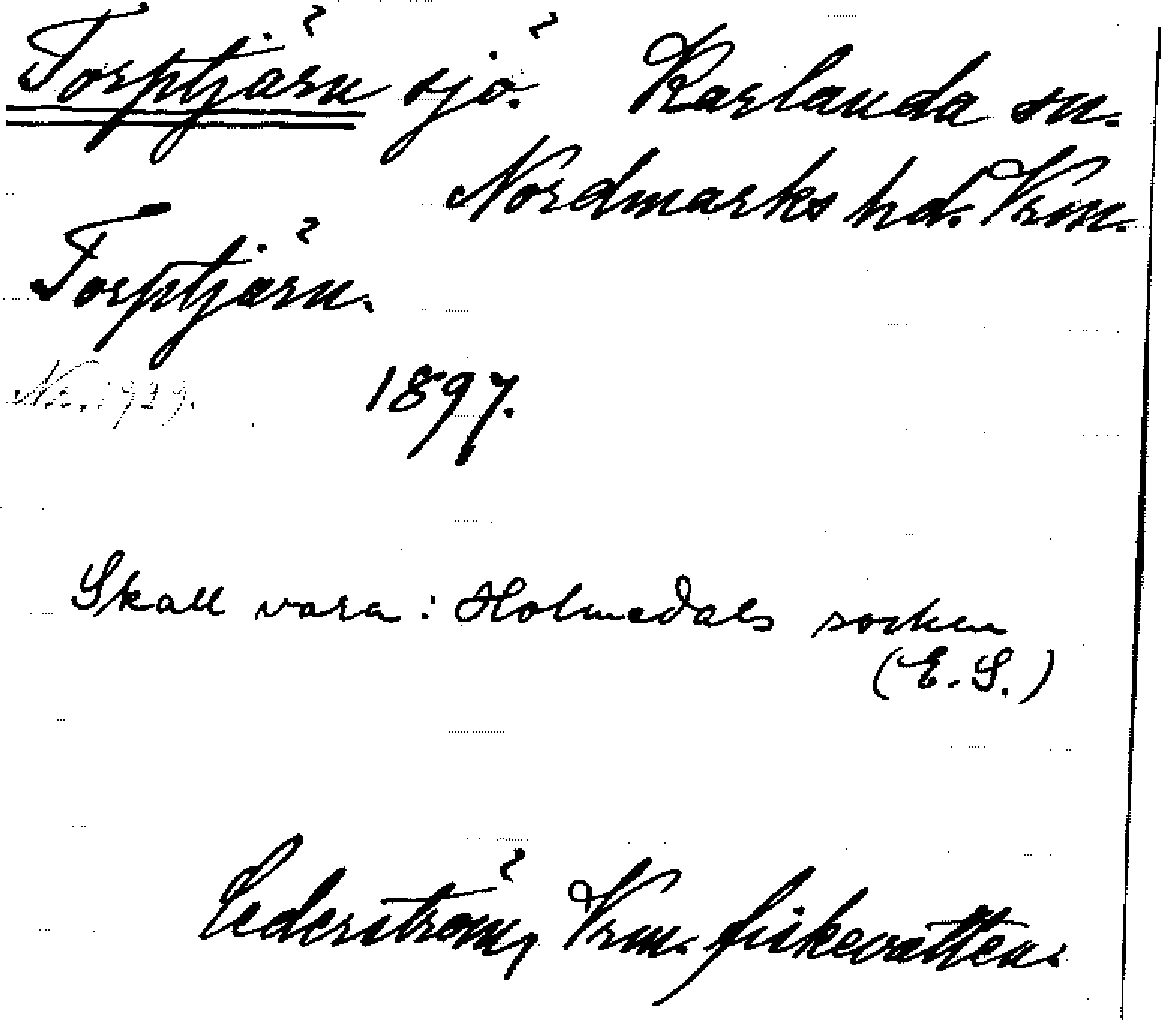 Torptjärn sjö. Karlanda sn.
Nordmarks hd. Vrm.
Torptjärn.
Nr. 1929. 1897.
Skall vara: Holmedals socken
(E. S.)
Cederström, Vrm. fiskevatten.